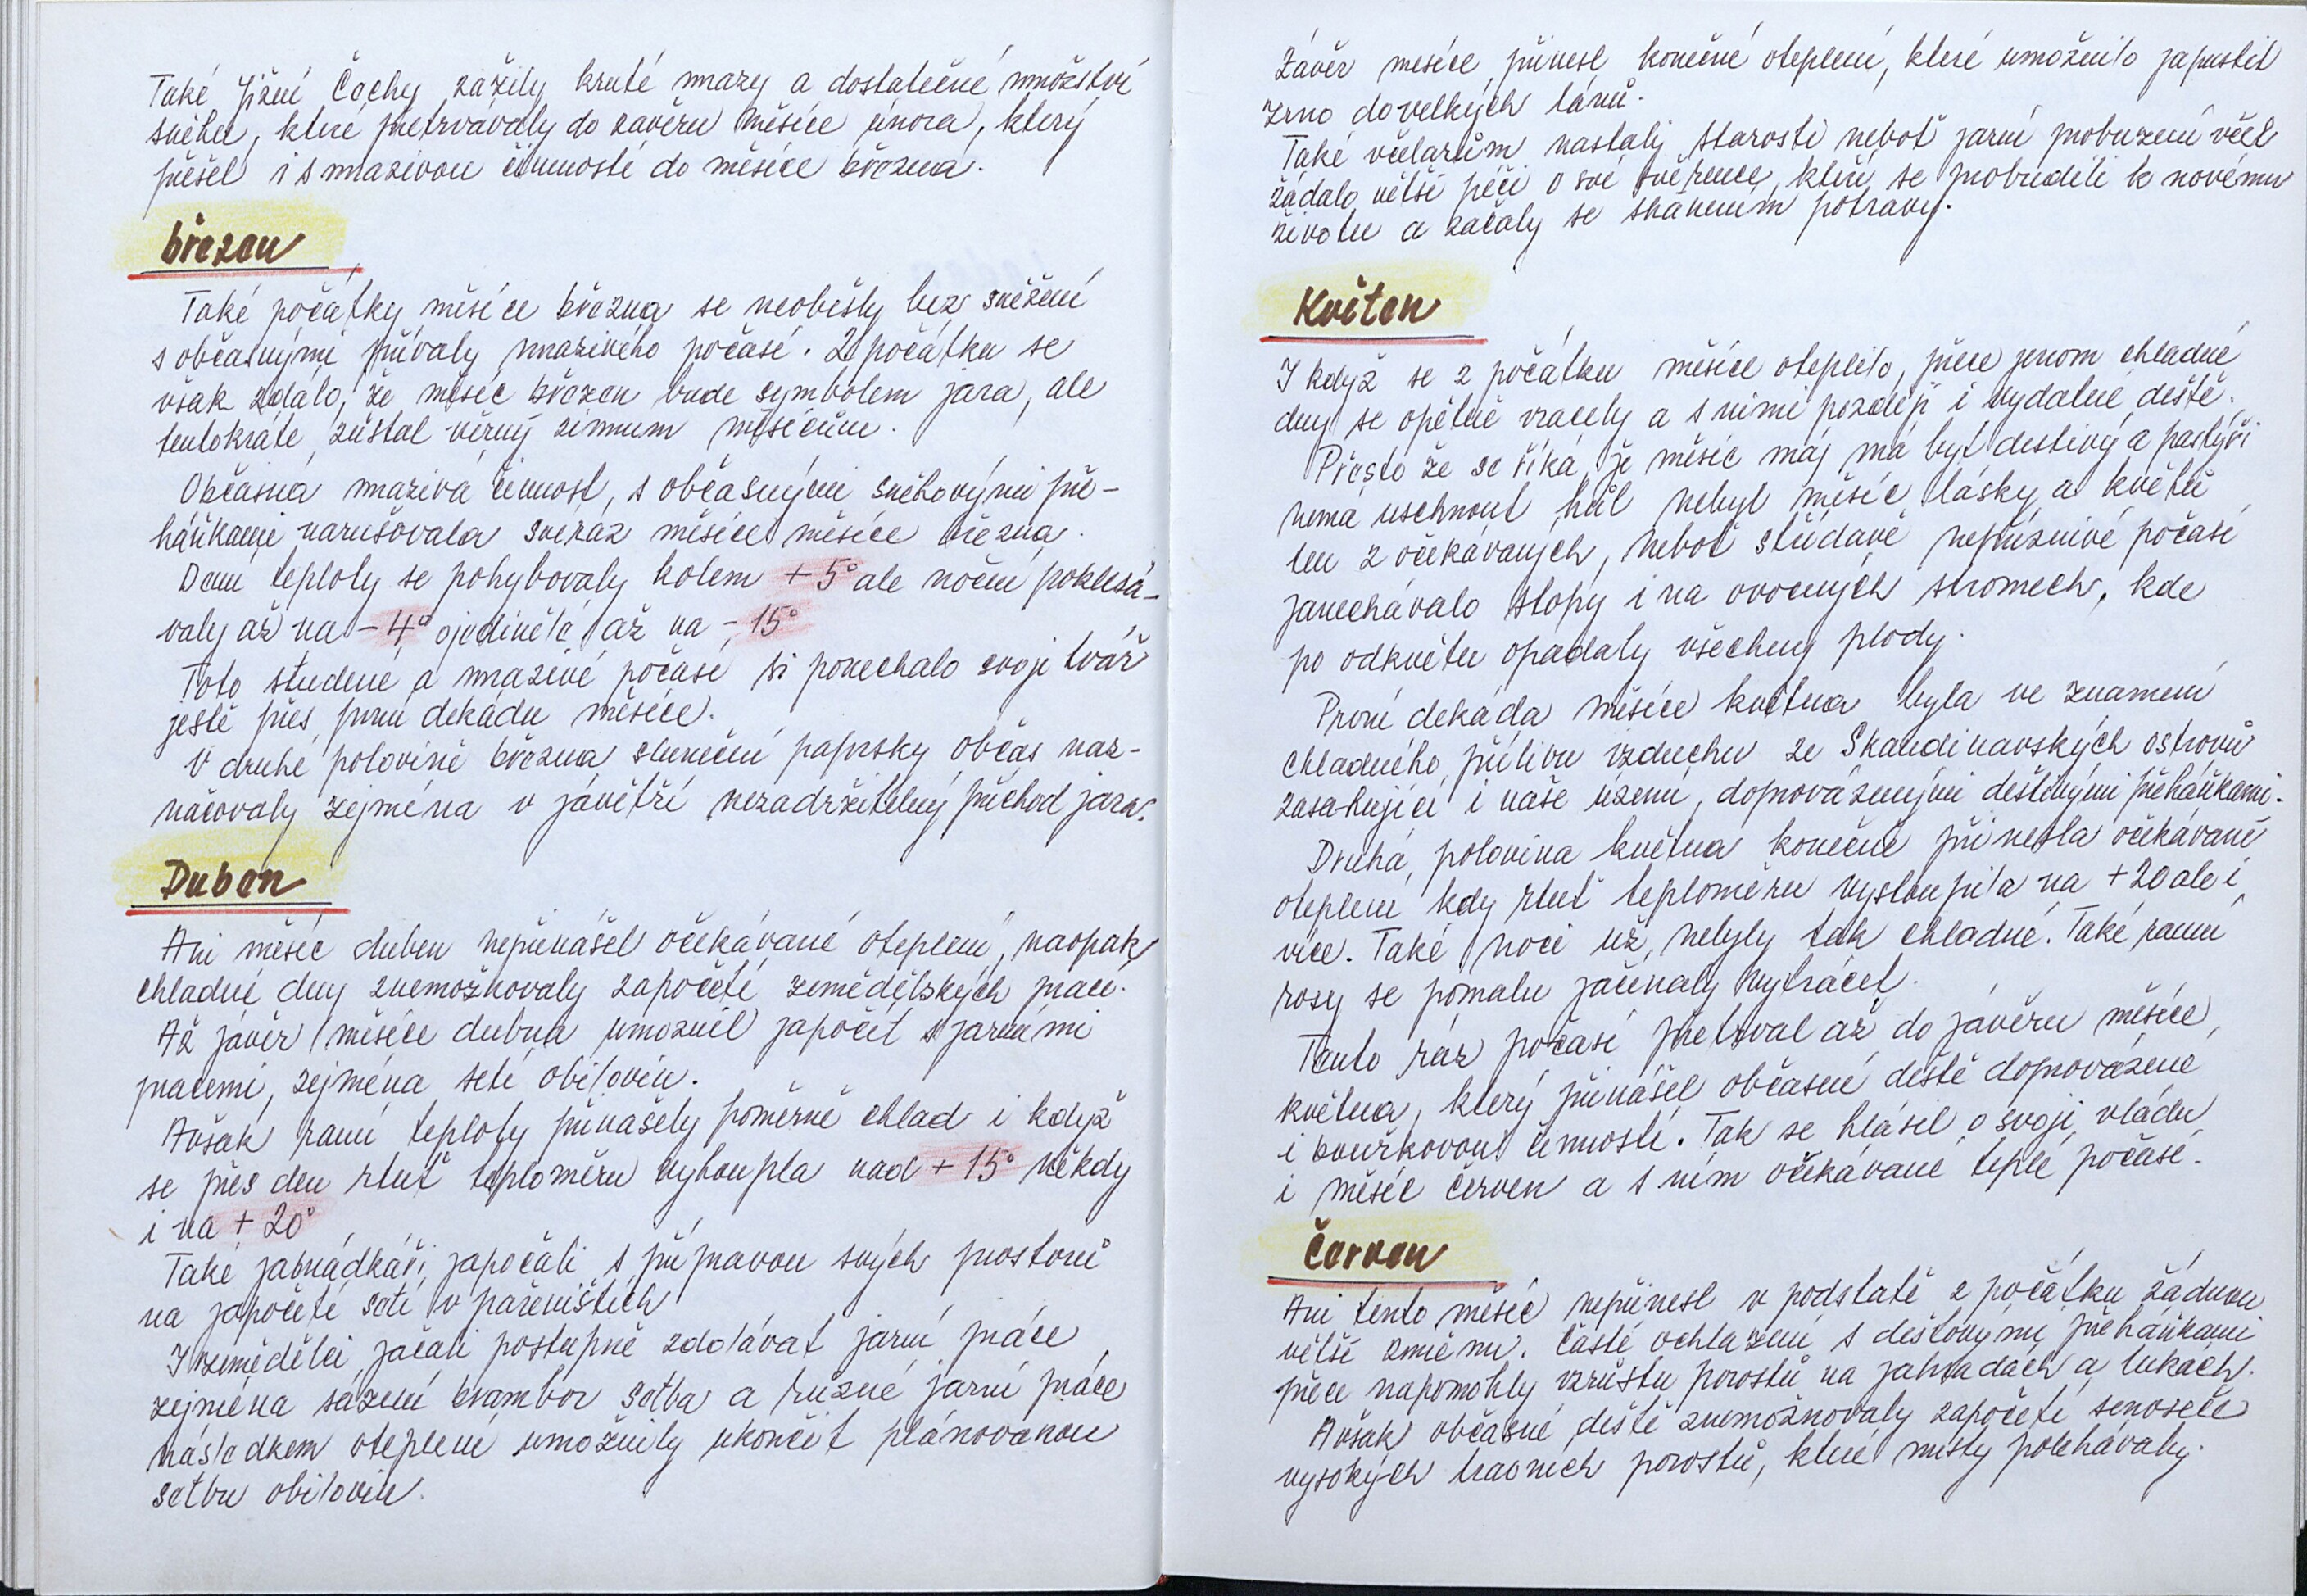 Také Jižní Čechy zažily kruté mrazy a dostatečné množství
sněhu, které přetrvávaly do závěru měsíce února, který
přešel i s mrazivou činností do měsíce března.
březen
Také počátky měsíce března se neobešly bez sněžení
s občasnými přívaly mrazivého počasí. Z počátku se
však zdálo, že měsíc březen bude symbolem jara, ale
tentokráte zůstal věrný zimním měsícům.
Občasná mrazivá činnost, s občasnými sněhovými pře-
háňkami narušovala svéráz měsíce měsíce března.
Denní teploty se pohybovaly kolem +5° ale noční poklesá-
valy až na -4° ojediněle až na -15°
Toto studené a mrazivé počasí si ponechalo svoji tvář
ještě přes první dekádu měsíce.
V druhé polovině března sluneční paprsky občas naz-
načovaly zejména v závětří nezadržitelný příchod jara.
Duben
Ani měsíc duben nepřinášel očekávané oteplení, naopak
chladné dny znemožňovaly započetí zemědělských prací.
Až závěr měsíce dubna umožnil započít s jarními
pracemi, zejména setí obilovin.
Avšak ranní teploty přinášely poměrně chlad i když
se přes den rtuť teploměru vyhoupla nad +15° někdy
i na +20°
Také zahrádkáři započali s přípravou svých prostorů
na započetí setí v pařeništích
I zemědělci začali postupně zdolávat jarní práce
zejména sázení brambor setba a různé jarní práce
následkem oteplení umožnily ukončit plánovanou
setbu obilovin.
Závěr mesíce přinesl konečné oteplení, které umožnilo zapustit
zrno do velkých lánů.
Také včelařům nastaly starosti neboť jarní probuzení včel
žádalo větší péči o své svěřence, kteří se probudili k novému
životu a začaly se sháněním potravy.
Květen
I když se z počátku měsíce oteplilo, přece jenom chladné
dny se opětně vracely a s nimi později i vydatné deště.
Přesto že se říká, že měsíc máj má být deštivý a pastýři
nemá uschnout hůl nebyl měsíc lásky a květů
ten z očekávaných, neboť střídavě nepříznivé počasí
zanechávalo stopy i na ovocných stromech, kde
po odkvětu opadaly všechny plody.
První dekáda měsíce května byla ve znamení
chladného přílivu vzduchu ze Skandinavských ostrovů
zasahující i naše území, doprovázenými dešťovými přeháňkami.
Druhá polovina května konečně přinesla očekávané
oteplení kdy rtuť teploměru vystoupila na +20 ale i
více. Také noci už nebyly tak chladné. Také ranní
rosy se pomalu začínaly vytrácet.
Tento ráz počasí přetrval až do závěru měsíce
května, který přinášel občasné deště doprovázené
i bouřkovou činností. Tak se hlásil o svoji vládu
i měsíc červen a s ním očekávané teplé počasí.
Červen
Ani tento měsíc nepřinesl v podstatě z počátku žádnou
větší změnu. Časté ochlazení s dešťovými přeháňkami
přece napomohly vzrůstu porostů na zahradách a lukách.
Avšak občasné deště znemožňovaly započetí senoseče
vysokých travních porostů, které místy polehávaly.